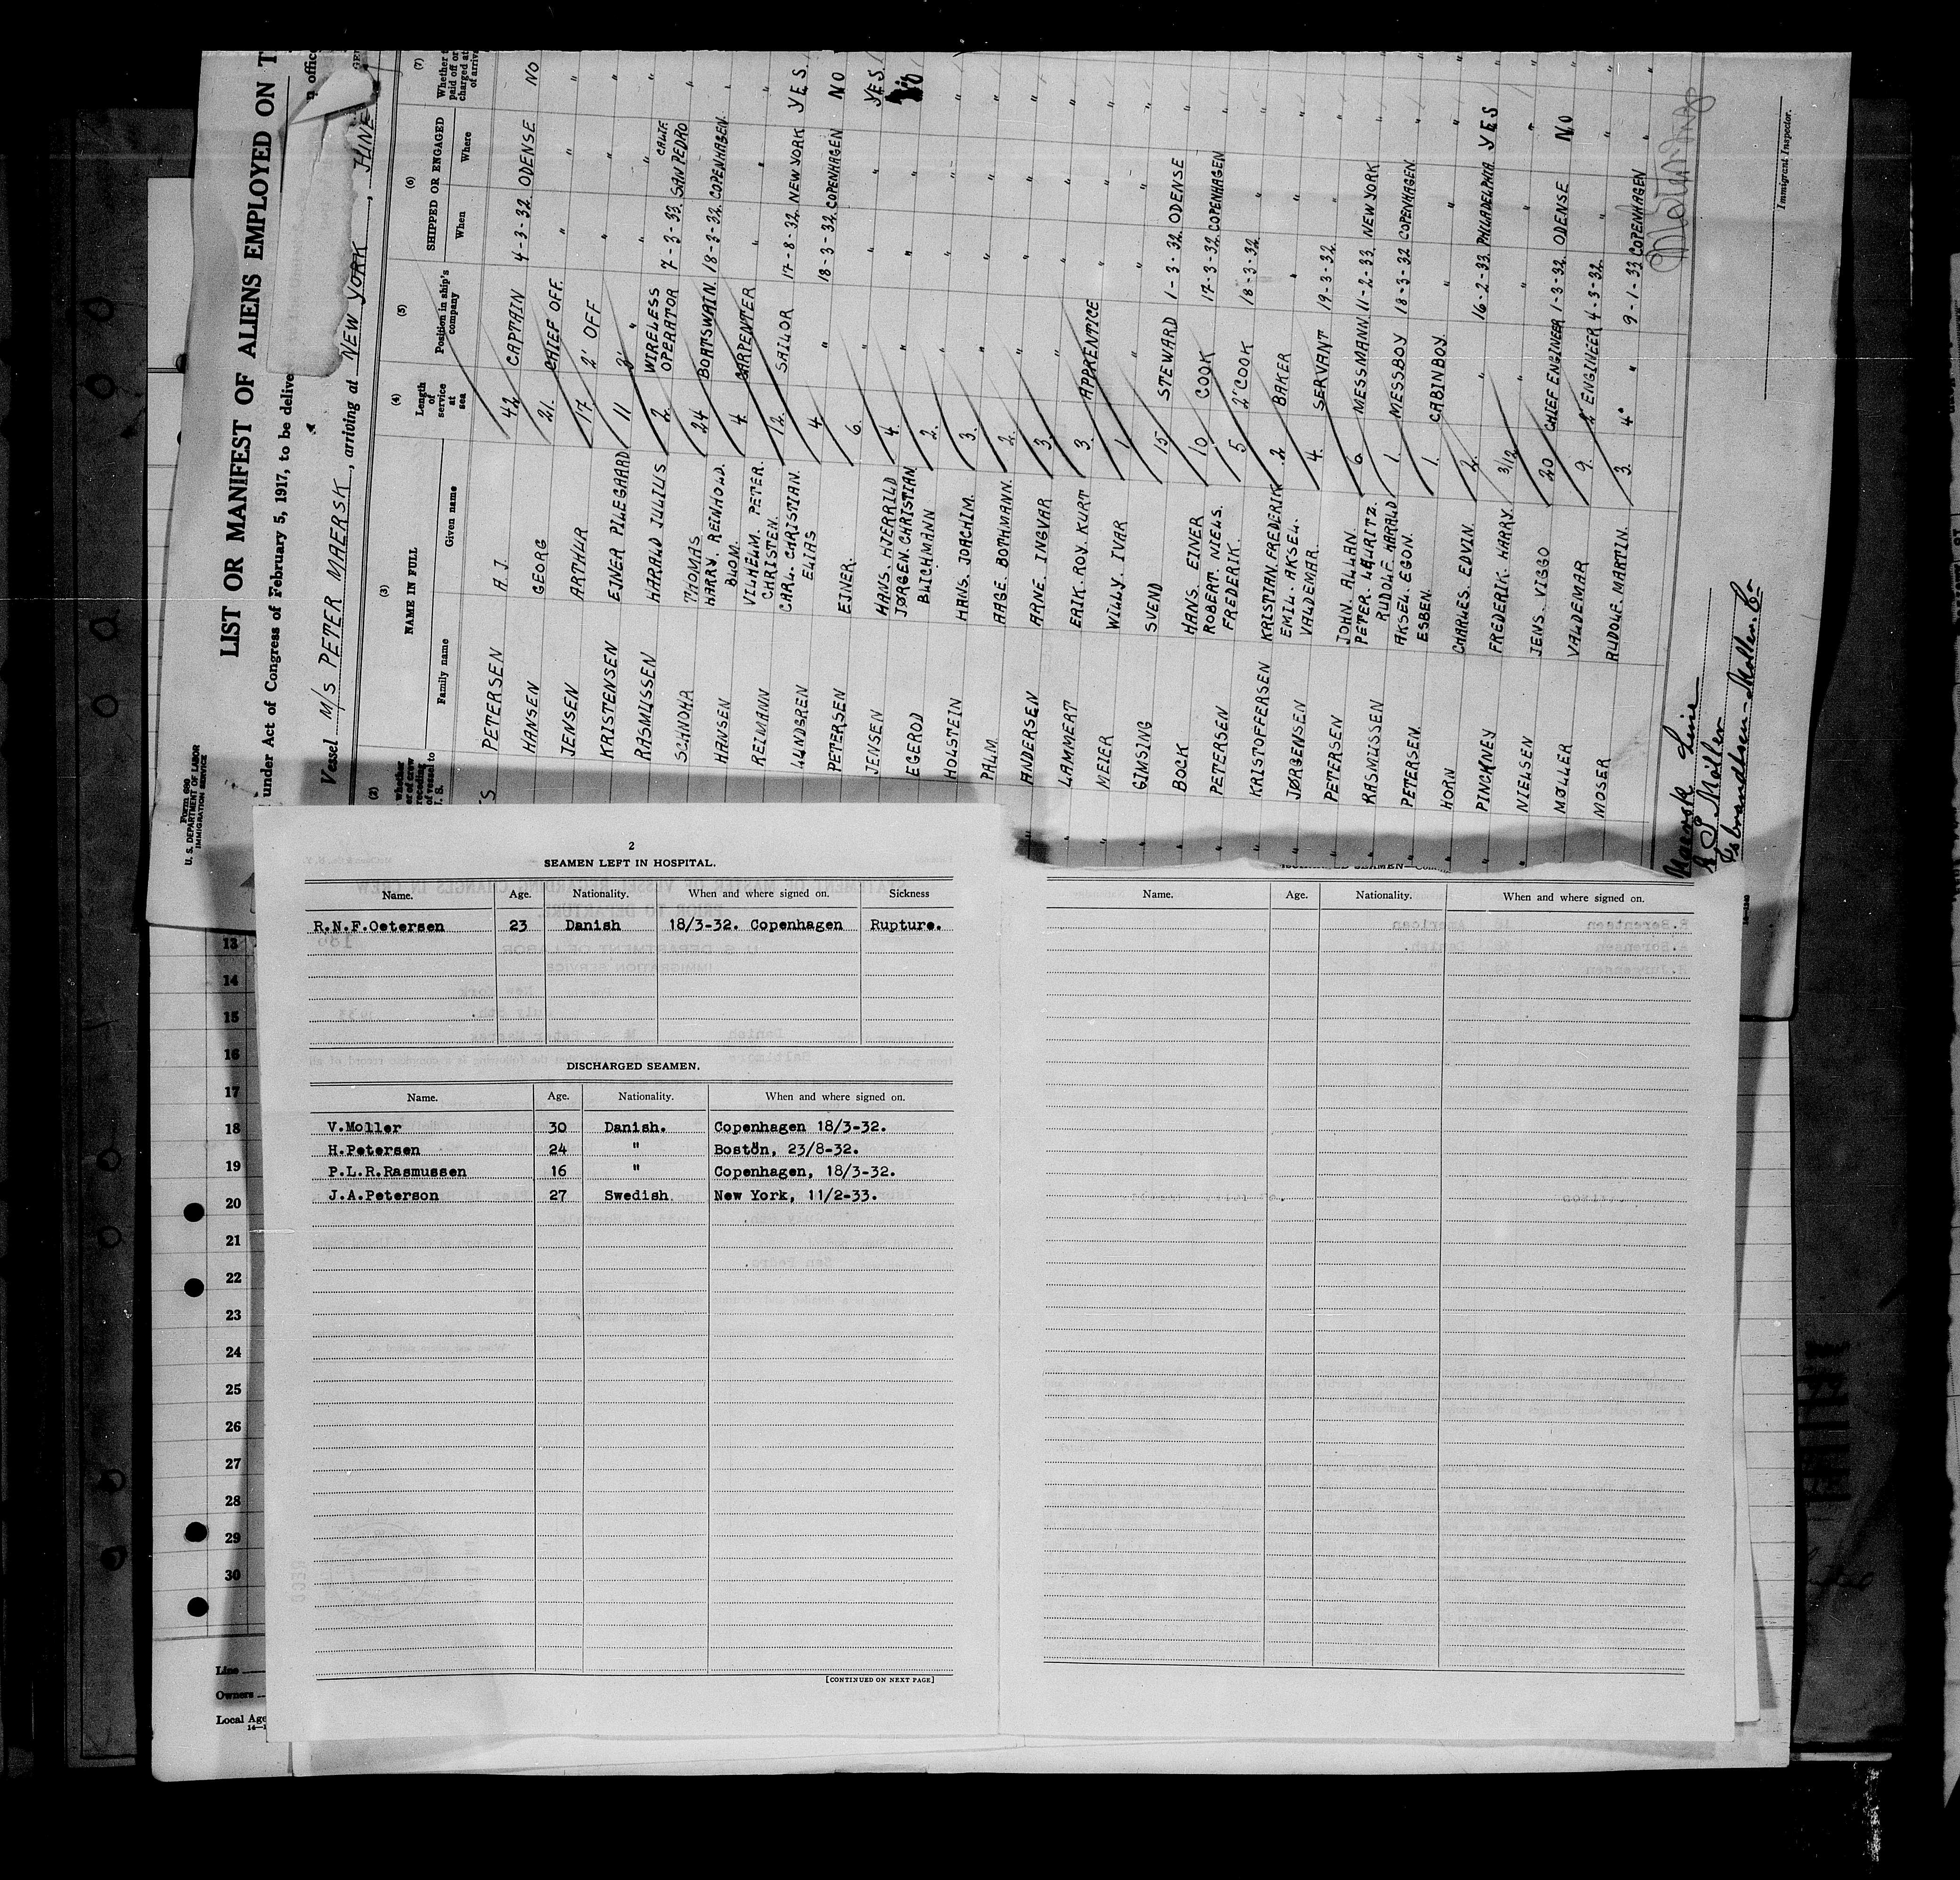 Form 680
U. S. DEPARTMENT OF LABOR
IMMIGRATION SERVICE
LIST OR MANIFEST OF ALIENS EMPLOYED ON T
under Act of Congress of February 5, 1917, to be delive
Vessel M/S PETER MAERSK, arriving at NEW YORK, JUNE
(2) (3) (4) (5) (6) (7)
NAME IN FULL
Family name Given name
Length of service at sea
Position in ship's company
SHIPPED OR ENGAGED
When Where
PETERSEN A.J. 42 CAPTAIN 4-3-32 ODENSE NO
HANSEN GEORG 21. CHIEF OFF. " " "
JENSEN ARTHUR 17. 2' OFF " " "
KRISTENSEN EJNER PILEGAARD 11 3' " " " "
RASMUSSEN HARALD JULIUS 2. WIRELESS OPERATOR 7-3-33 SAN PEDRO CALIF. "
SCHNOHR THOMAS HARRY. REINHOLD. 24 BOATSWAIN. 18-3-32 COPENHAGEN. "
HANSEN BLOM. 4. CARPENTER " " "
REIMANN VILHELM. PETER. CHRISTEN. 12. SAILOR 17-8-32 NEW YORK YES.
LUNDGREN CARL. CHRISTIAN ELIAS 4 " 18-3-32 COPENHAGEN NO
PETERSEN EJNER. 6. " " " YES.
JENSEN HANS. HJERRILD 4. " " " NO
EGEROD JØRGEN. CHRISTIAN BLICHMANN 2. " " " "
HOLSTEIN HANS. JOACHIM. 3. " " " "
PALM AAGE. BOTHMANN. 2. " " " "
ANDERSEN ARNE. INGVAR 3. " " " "
LAMMERT ERIK. ROY. KURT 3. APPRENTICE " " "
MEIER WILLY. IVAR 1. " " " "
GIMSING SVEND 15 STEWARD 1-3-32 ODENSE "
BOCK HANS. EJNER 10 COOK 17-3-32 COPENHAGEN "
PETERSEN ROBERT. NIELS. FREDERIK. 5 2" COOK 18-3-32 " "
KRISTOFFERSEN KRISTIAN. FREDERIK. 2 BAKER " " "
JØRGENSEN EMIL. AKSEL. VALDEMAR. 4. SERVANT 19-3-32 " "
PETERSEN JOHN. ALLAN. 6 MESSMANN 11-2-33. NEW YORK "
RASMUSSEN PETER. LAURITZ. RUDOLF. HARALD 1 MESSBOY 18-3-32 COPENHAGEN "
PETERSEN. AKSEL. EGON. ESBEN. 1. CABINBOY. " " "
HORN CHARLES. EDVIN. 2. " 16-2-33. PHILADELPHIA YES
PINCKNEY FREDERIK. HARRY. 3/12 " " " "
NIELSEN JENS. VIGGO 20 CHIEF ENGINEER 1-3-32 ODENSE NO
MØLLER VALDEMAR 9. 2' ENGINEER 4-3-32. " "
MOSER RUDOLF. MARTIN. 3. 4" " 9-1-33 COPENHAGEN "
Immigrant Inspector.
Maersk Line
2
SEAMEN LEFT IN HOSPITAL.
Name. Age. Nationality. When and where signed on. Sickness
R.N.F.Oetersen 23 Danish 18/3-32. Copenhagen Rupture.
DISCHARGED SEAMEN.
Name. Age. Nationality. When and where signed on.
V.Moller 30 Danish. Copenhagen 18/3-32.
H.Petersen 24 " Boston, 23/8-32.
P.L.R.Rasmussen 16 " Copenhagen, 18/3-32.
J.A.Peterson 27 Swedish New York, 11/2-33.
[CONTINUED ON NEXT PAGE]
Name. Age. Nationality. When and where signed on.
13
14
15
16
17
18
19
20
21
22
23
24
25
26
27
28
29
30
Line
Owners
Local Age